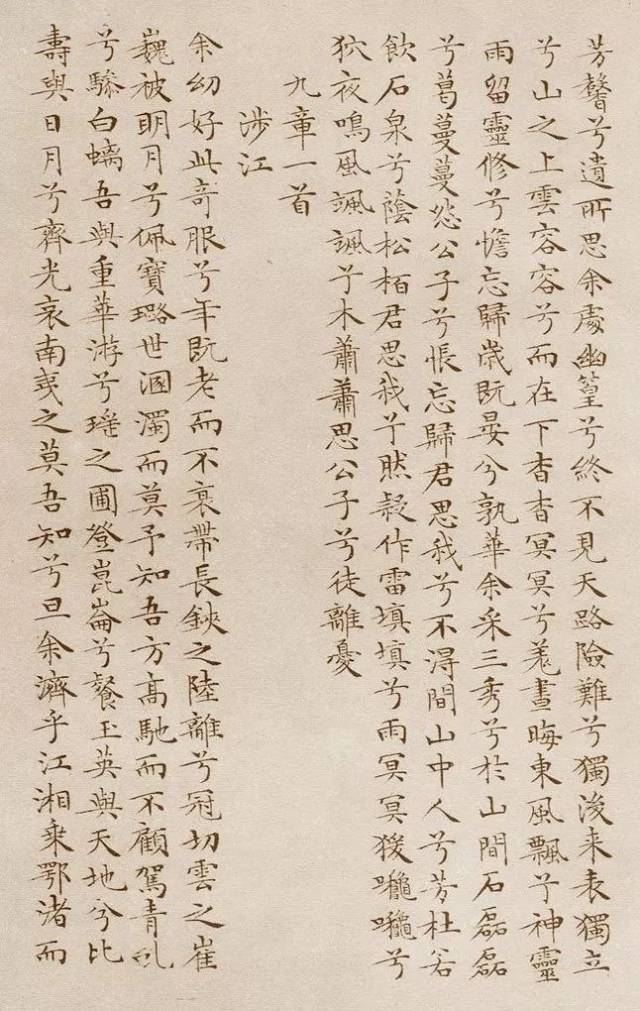 芳馨兮遺所思余處幽篁兮終不見天路險難兮獨後来表獨立
兮山之上雲容容兮而在下杳杳冥冥兮羌晝晦東風飄兮神靈
雨留靈修兮憺忘歸歲既晏兮孰華余采三秀兮於山間石磊磊
兮葛蔓蔓怨公子兮悵忘歸君思我兮不淂間山中人兮芳杜若
飲石泉兮蔭松栢君思我兮然疑作雷填填兮雨冥冥猨囖囖兮
狖夜鳴風颯颯兮木蕭蕭思公子兮徒離憂
九章一首
涉江
余幼好此竒服兮年既老而不衰帶長鋏之陸離兮冠切雲之崔
巍被明月兮佩寶璐世溷濁而莫予知吾方高馳而不顧駕青虬
兮驂白螭吾與重華游兮瑤之圃登崑崙兮餐玉英與天地兮比
壽與日月兮齊光哀南夷之莫吾知兮旦余濟乎江湘乘鄂渚而